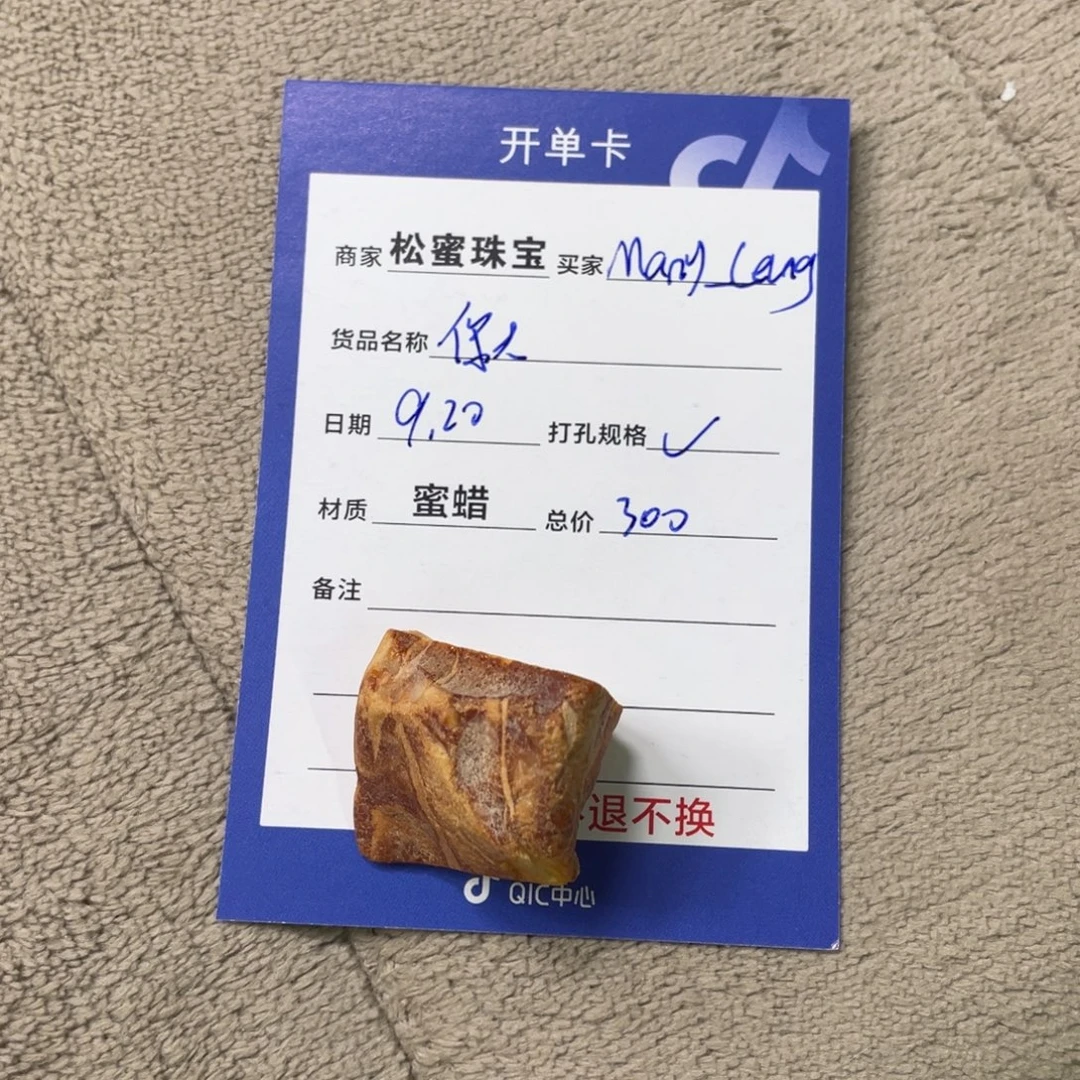 开单卡
商家 松蜜珠宝 买家 Mary_Leng
货品名称 保大
日期 9.20 打孔规格 ✓
材质 蜜蜡 总价 300
备注
退不换
QIC中心